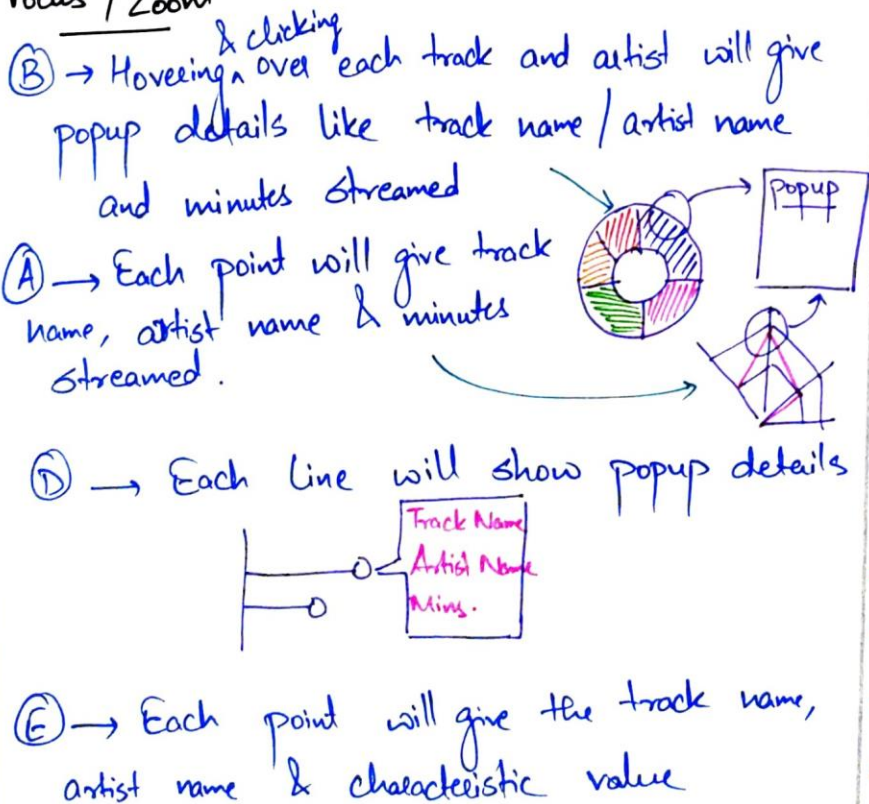 Focus / Zoom
& clicking
Ⓑ → Hovering ^ over each track and artist will give
popup details like track name / artist name
and minutes streamed
popup
Ⓐ → Each point will give track
name, artist name & minutes
streamed.
Ⓓ → Each line will show popup details
Track Name
Artist Name
Mins.
Ⓔ → Each point will give the track name,
artist name & characteristic value